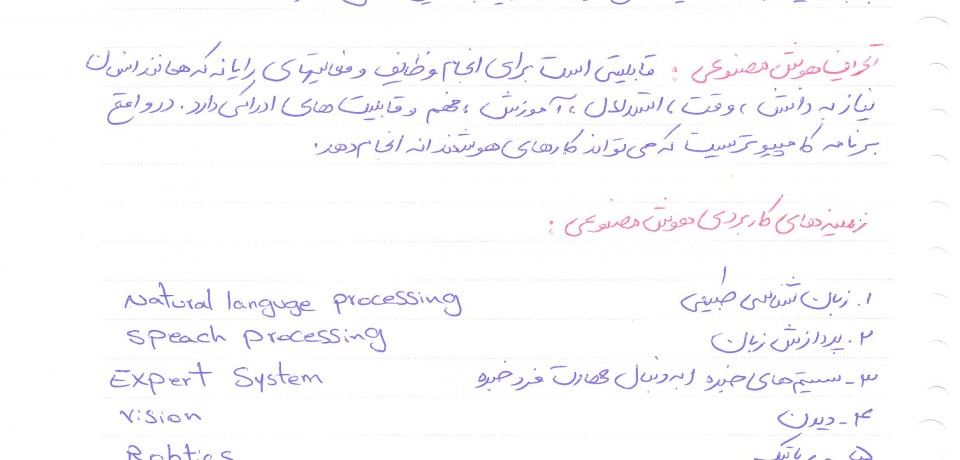 تعریف هوش مصنوعی : قابلیتی است برای انجام وظایف و فعالیتهای رایانه که همانند انسان
نیاز به دانش ، وقت ، استدلال ، آموزش ، فهم و قابلیت های ادراکی دارد. در واقع
برنامه کامپیوتریست که می تواند کارهای هوشمندانه انجام دهد.
زمینه های کاربردی هوش مصنوعی :
۱. زبان شناسی طبیعی Natural languge processing
۲. پردازش زبان speach processing
۳- سیستم های خبره به دنبال مهارت فرد خبره Expert System
۴- دیدن Vision
۵- رباتیک Robtics